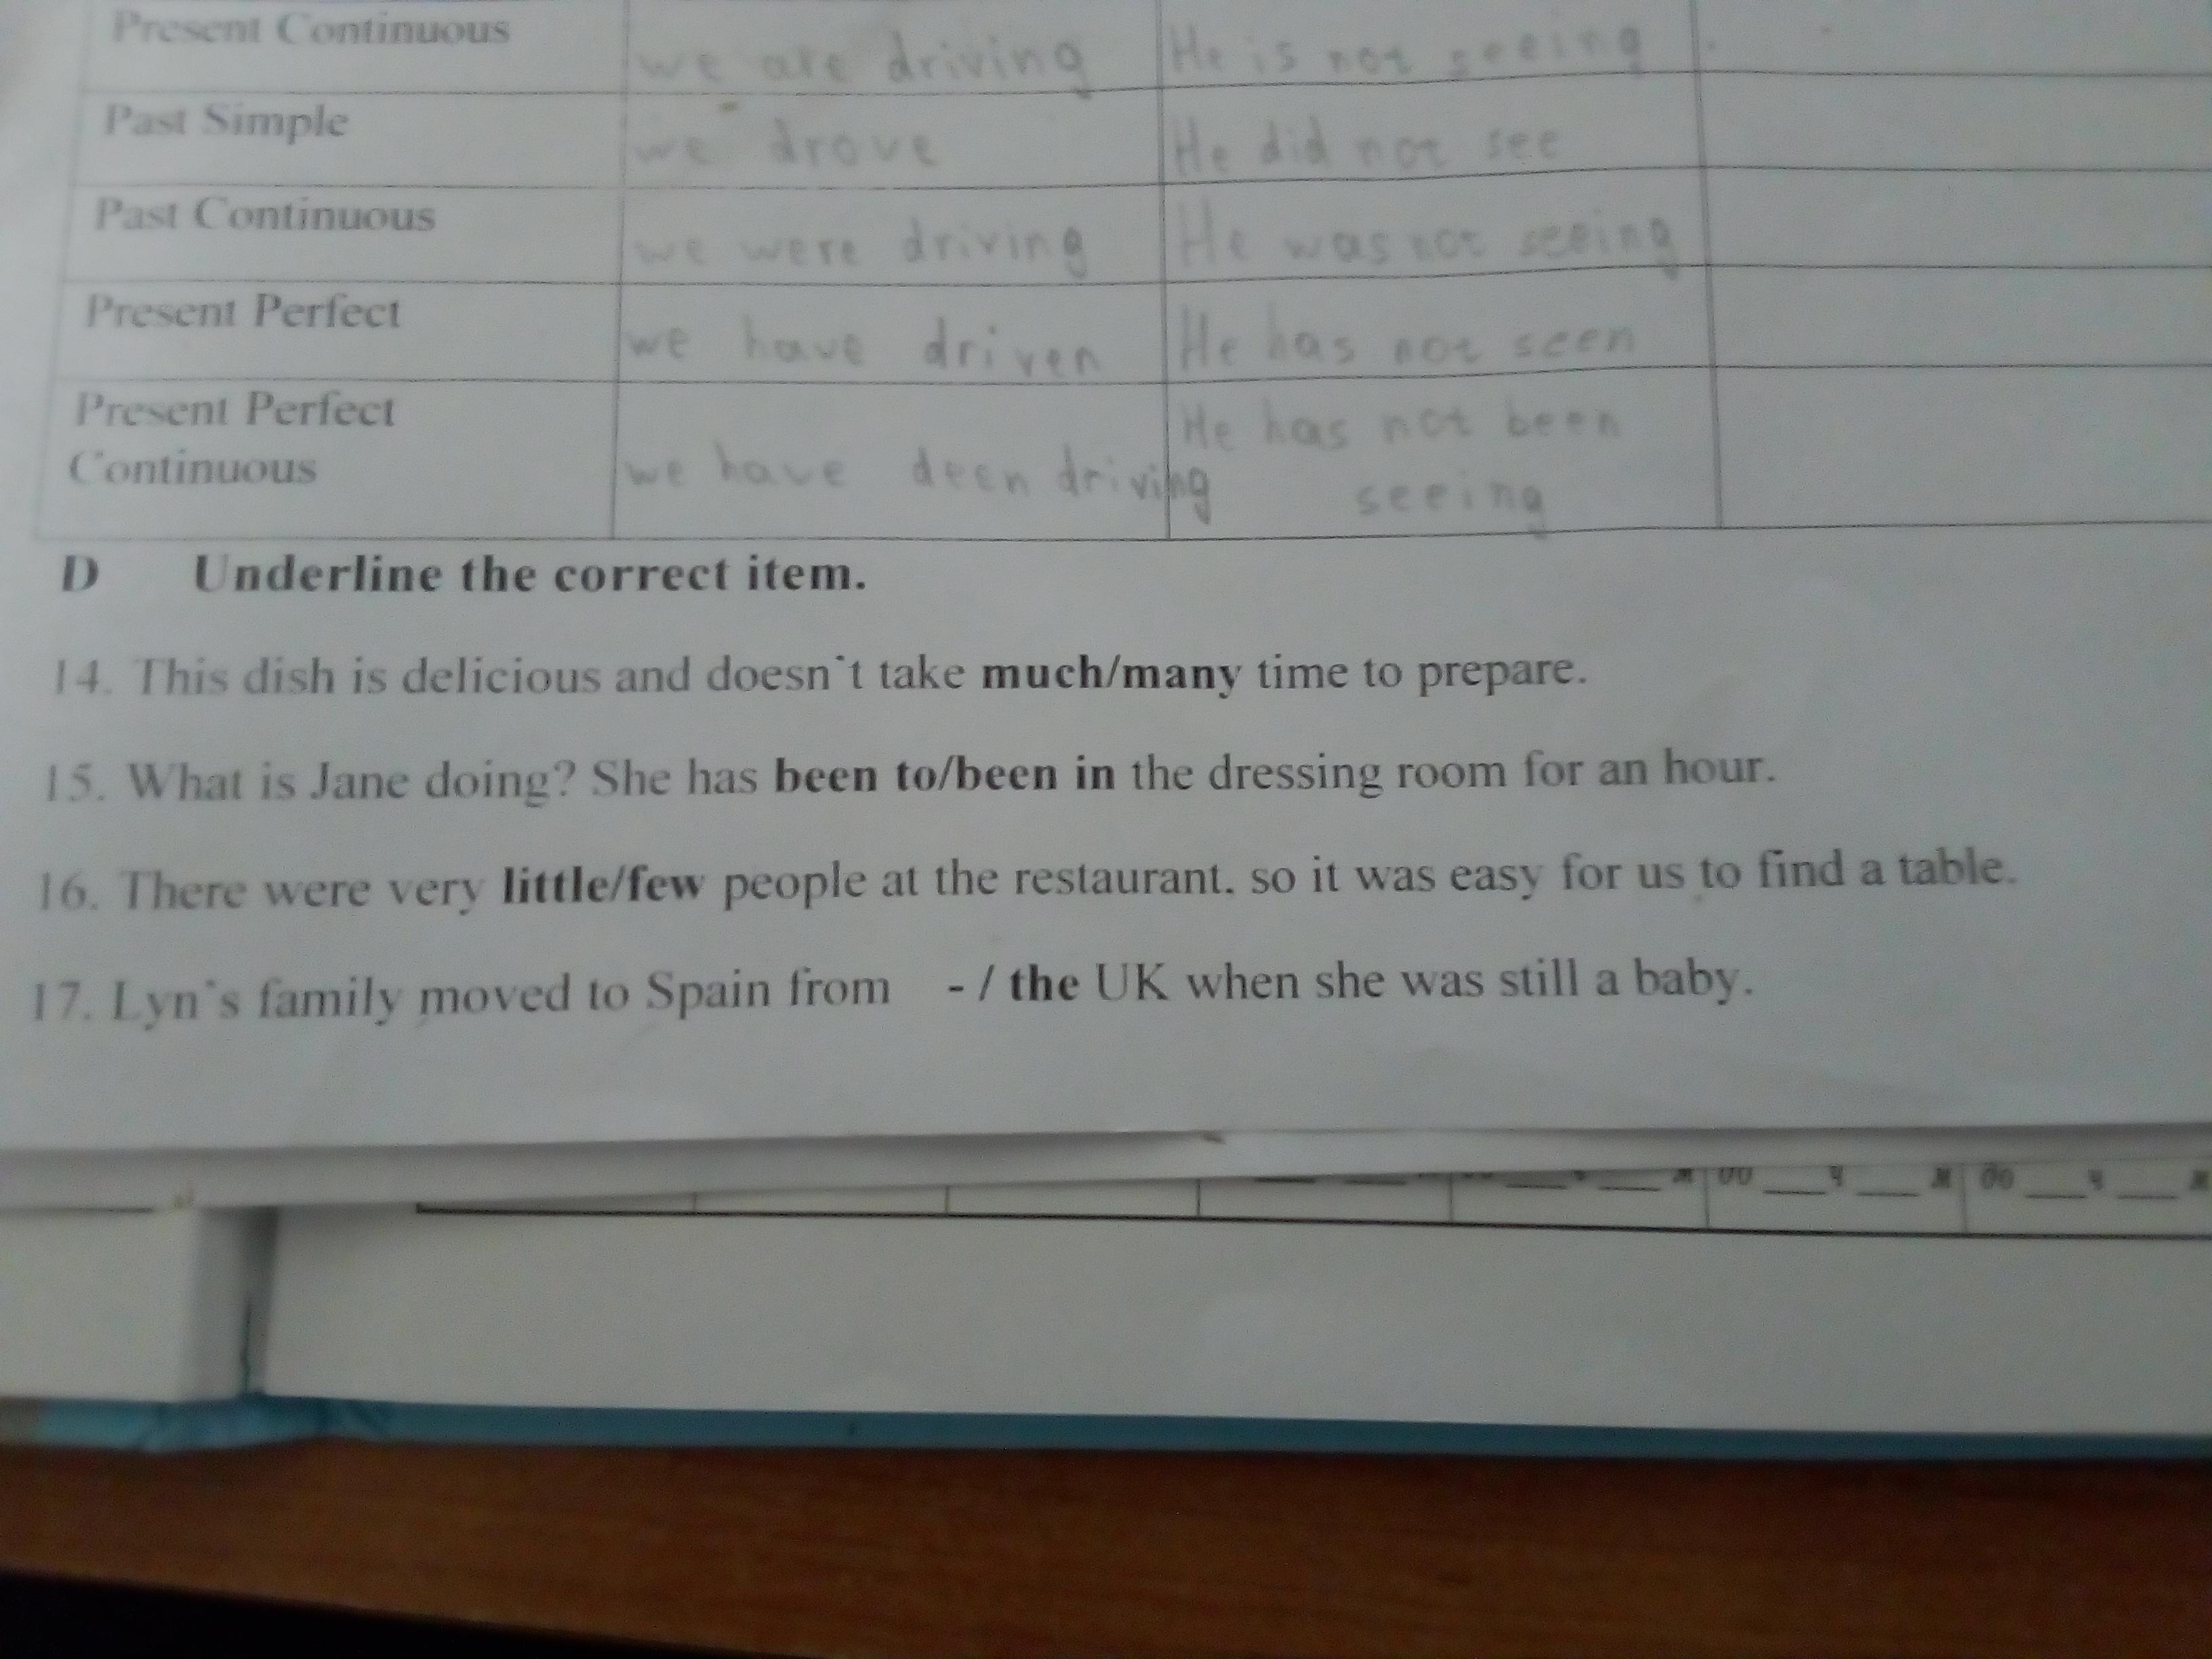 Present Continuous we are driving He is not seeing
Past Simple we drove He did not see
Past Continuous we were driving He was not seeing
Present Perfect we have driven He has not seen
Present Perfect He has not been
Continuous we have deen driving seeing
D Underline the correct item.
14. This dish is delicious and doesn't take much/many time to prepare.
15. What is Jane doing? She has been to/been in the dressing room for an hour.
16. There were very little/few people at the restaurant. so it was easy for us to find a table.
17. Lyn's family moved to Spain from - / the UK when she was still a baby.